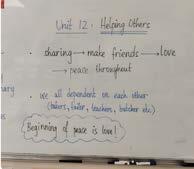 Unit 12: Helping Others
• sharing → make friends → love
→ peace throughout
• we all dependent on each other
(bakers, tailor, teachers, butcher etc)
Beginning of peace is love!